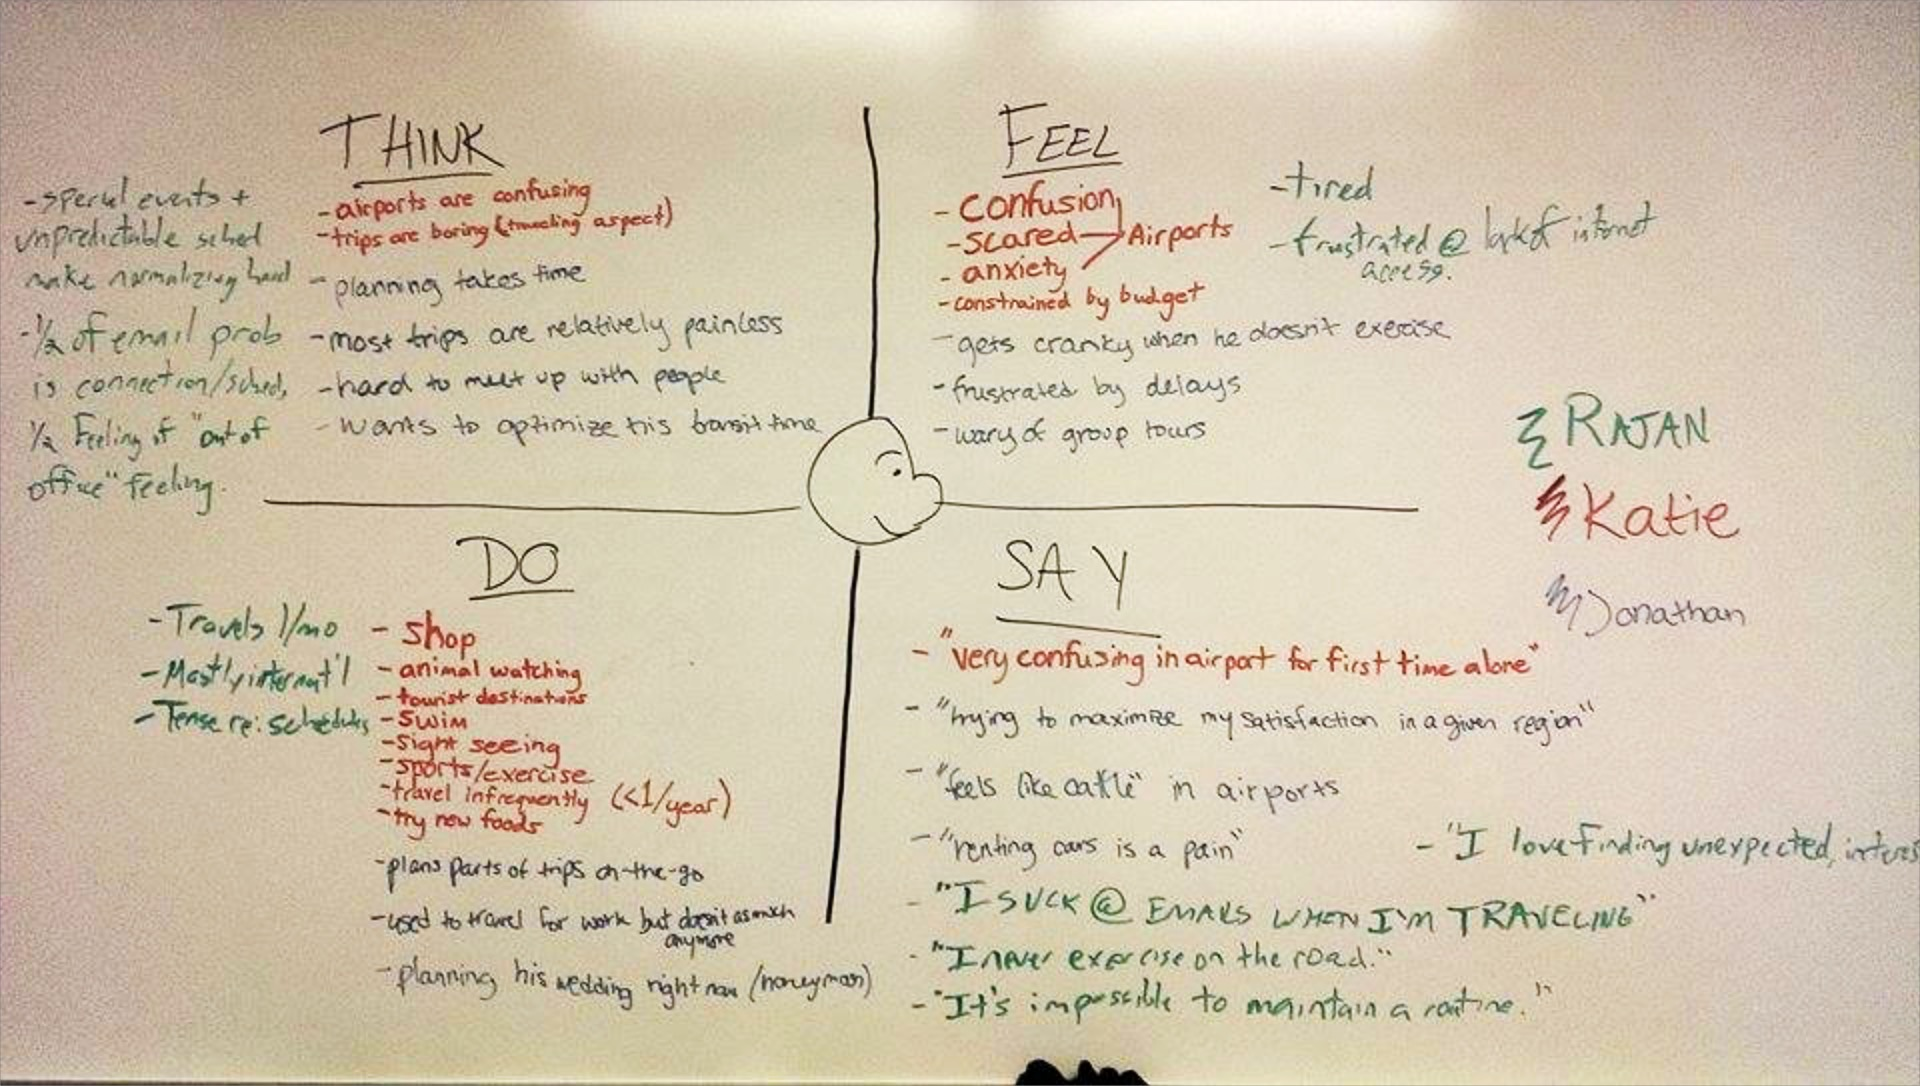 THINK
- special events +
unpredictable sched
make normalizing hard
- 1/2 of email prob
is connection/sched,
1/2 Feeling of "out of
office" feeling.
- airports are confusing
- trips are boring (traveling aspect)
- planning takes time
- most trips are relatively painless
- hard to meet up with people
- wants to optimize his transit time
FEEL
- confusion
- scared
- anxiety
Airports
- constrained by budget
- gets cranky when he doesn't exercise
- frustrated by delays
- wary of group tours
- tired
- frustrated @ lack of internet
access.
RAJAN
Katie
Jonathan
DO
- Travels 1/mo
- Mostly internat'l
- Tense re: schedules
- shop
- animal watching
- tourist destinations
- swim
- sight seeing
- sports/exercise
- travel infrequently (<1/year)
- try new foods
- plans parts of trips on-the-go
- used to travel for work but doesn't as much
anymore
- planning his wedding right now (honeymoon)
SAY
- "very confusing in airport for first time alone"
- "trying to maximize my satisfaction in a given region"
- "feels like cattle" in airports
- "renting cars is a pain"
- "I love finding unexpected,
- "I SUCK @ EMAILS WHEN I'M TRAVELING"
- "I never exercise on the road."
- "It's impossible to maintain a routine."